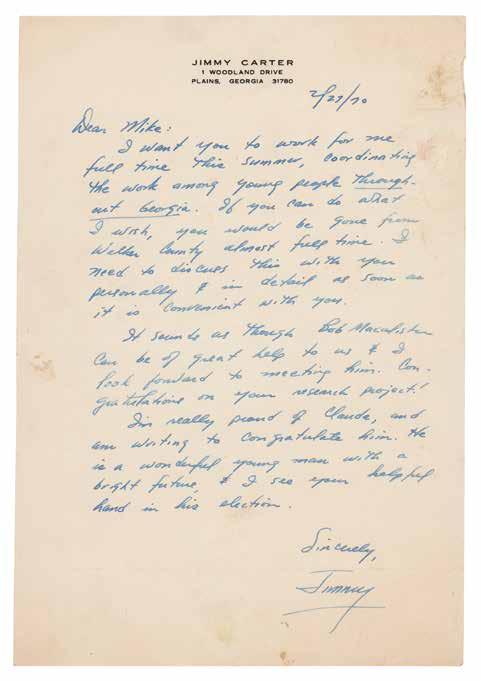 JIMMY CARTER
1 WOODLAND DRIVE
PLAINS, GEORGIA 31780
2/27/70
Dear Mike:
I want you to work for me
full time this summer, coordinating
the work among young people through-
out Georgia. If you can do what
I wish, you would be gone from
County almost full time. I
need to discuss this with you
personally & in detail as soon as
it is convenient with you.
It sounds as though Bob Macalister
can be of great help to us & I
look forward to meeting him. Con-
gratulations on your research project!
I'm really proud of Claude, and
am writing to congratulate him. He
is a wonderful young man with a
bright future, & I see your helpful
hand in his election.
Sincerely,
Jimmy